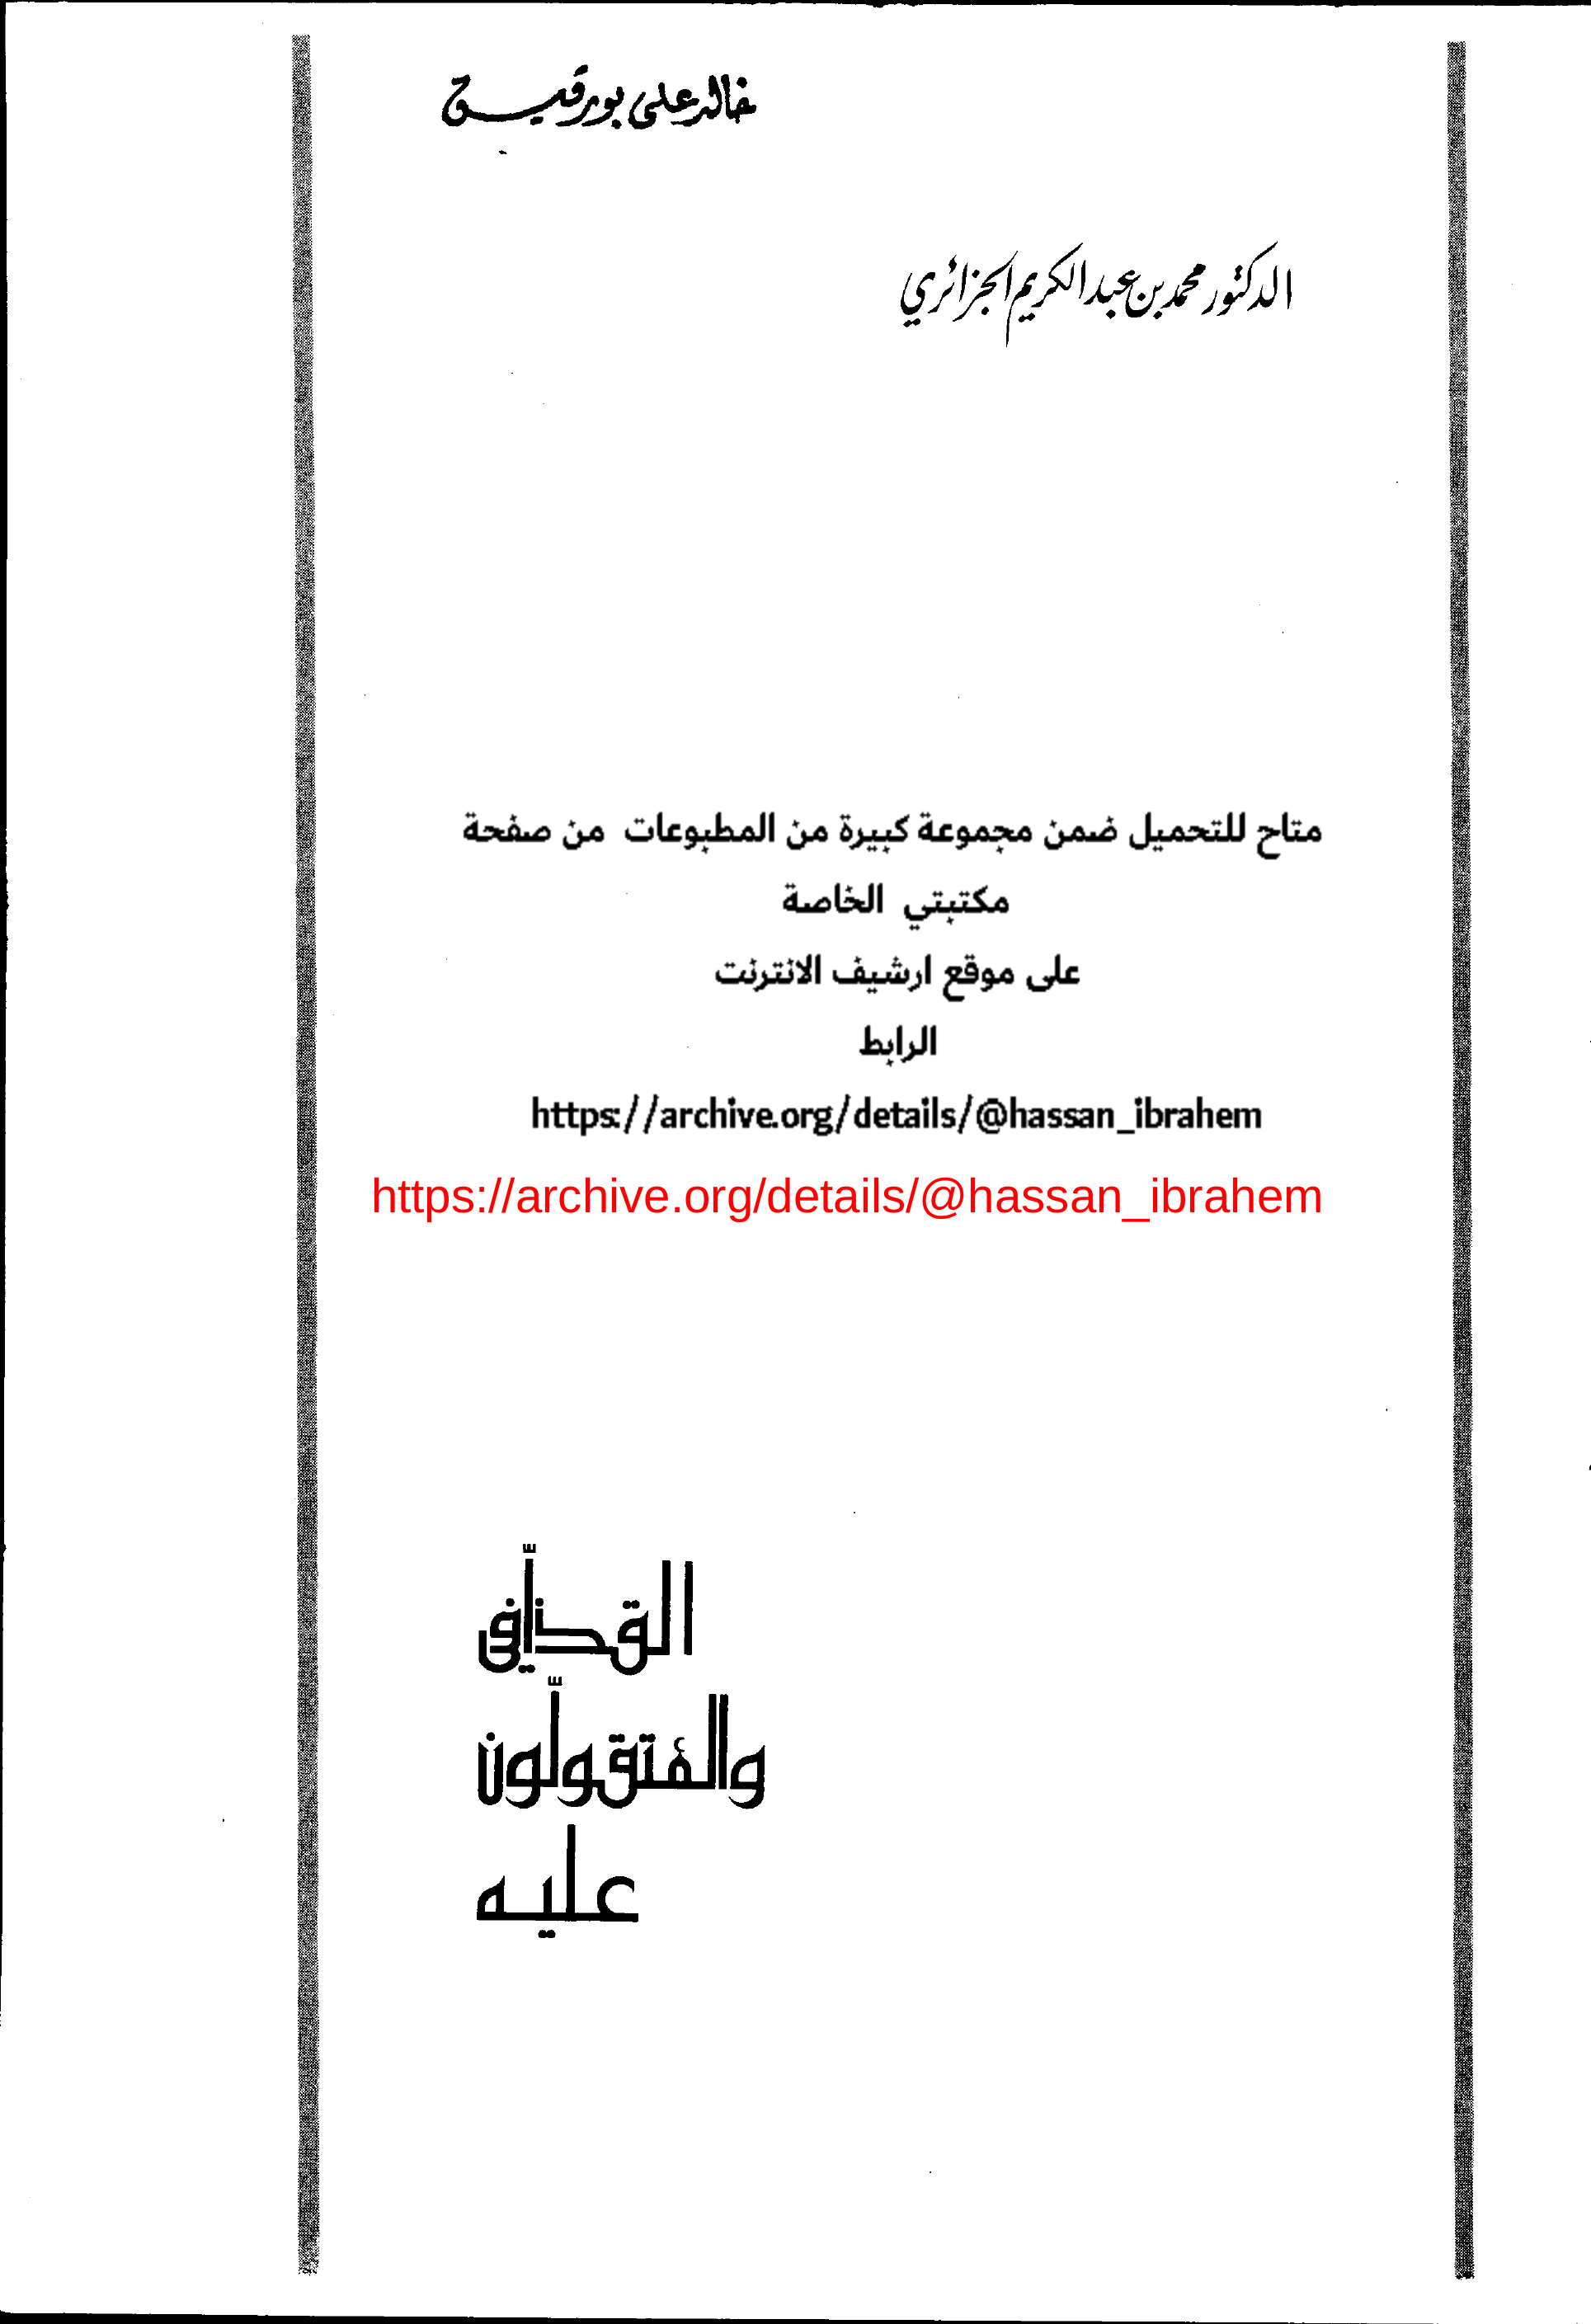 خالد علي بورقيق
الدكتور محمد بن عبد الكريم الجزائري
متاح للتحميل ضمن مجموعة كبيرة من المطبوعات من صفحة
مكتبتي الخاصة
على موقع ارشيف الانترنت
الرابط
https://archive.org/details/@hassan_ibrahem
https://archive.org/details/@hassan_ibrahem
القذافي
والمتقولون
عليه